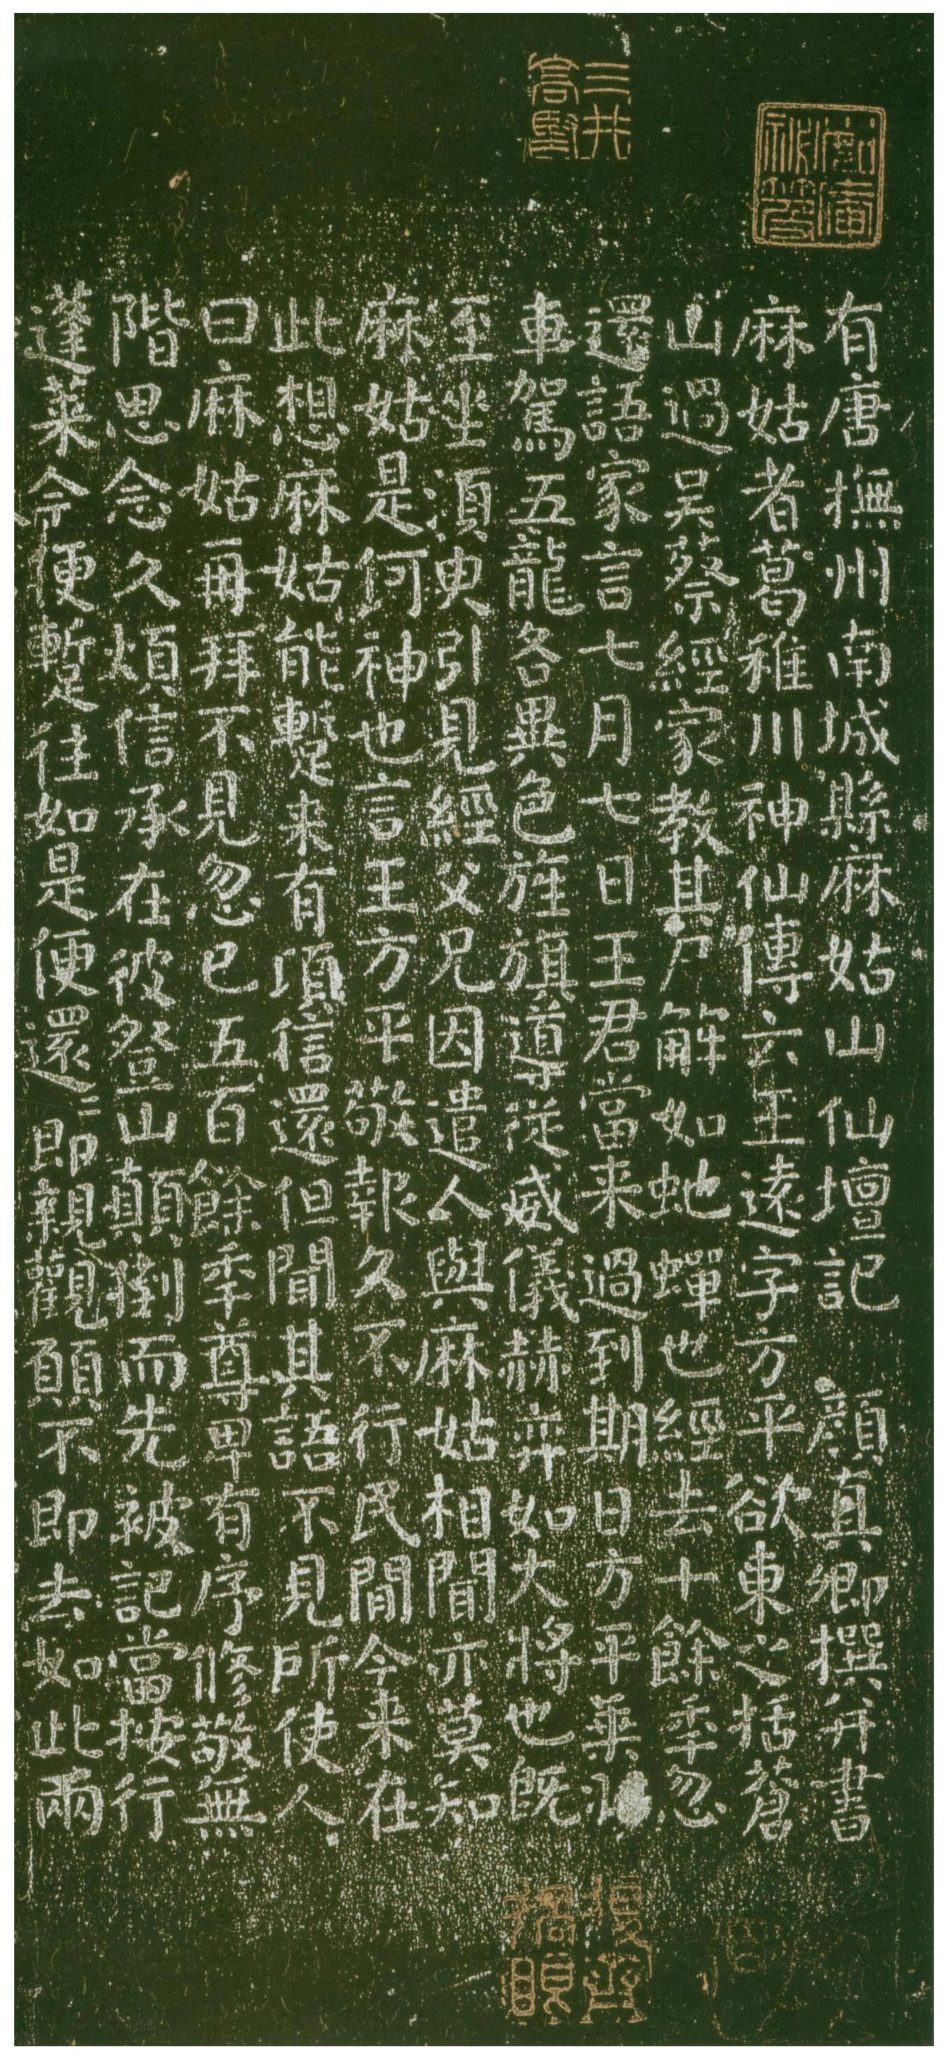 有唐撫州南城縣麻姑山仙壇記 顏真卿撰并書
麻姑者葛稚川神仙傳云王遠字方平欲東之括蒼
山過吳蔡經家教其尸解如虵蟬也經去十餘年忽
還語家言七月七日王君當来過到期日方平乗
車駕五龍各異色旌旗導從威儀赫弈如大將也既
至坐須臾引見經父兄因遣人與麻姑相聞亦莫知
麻姑是何神也言王方平敬報久不行民間今来在
此想麻姑能蹔来有頃信還但聞其語不見所使人
曰麻姑再拜不見忽已五百餘年尊卑有序修敬無
階思念久煩信承在彼登山顛倒而先被記當按行
蓬萊今便蹔往如是便還還即親觀願不即去如此兩
三井高堅